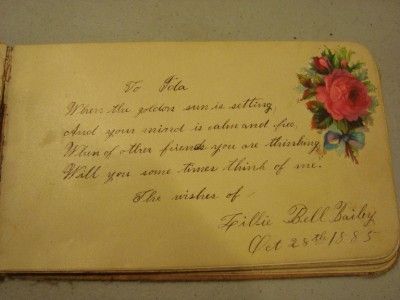 To Ida
When the golden sun is setting
And your mind is calm and free,
When of other friends you are thinking,
Will you some times think of me.
The wishes of
Lillie Bell Bailey
Oct 28th 1885